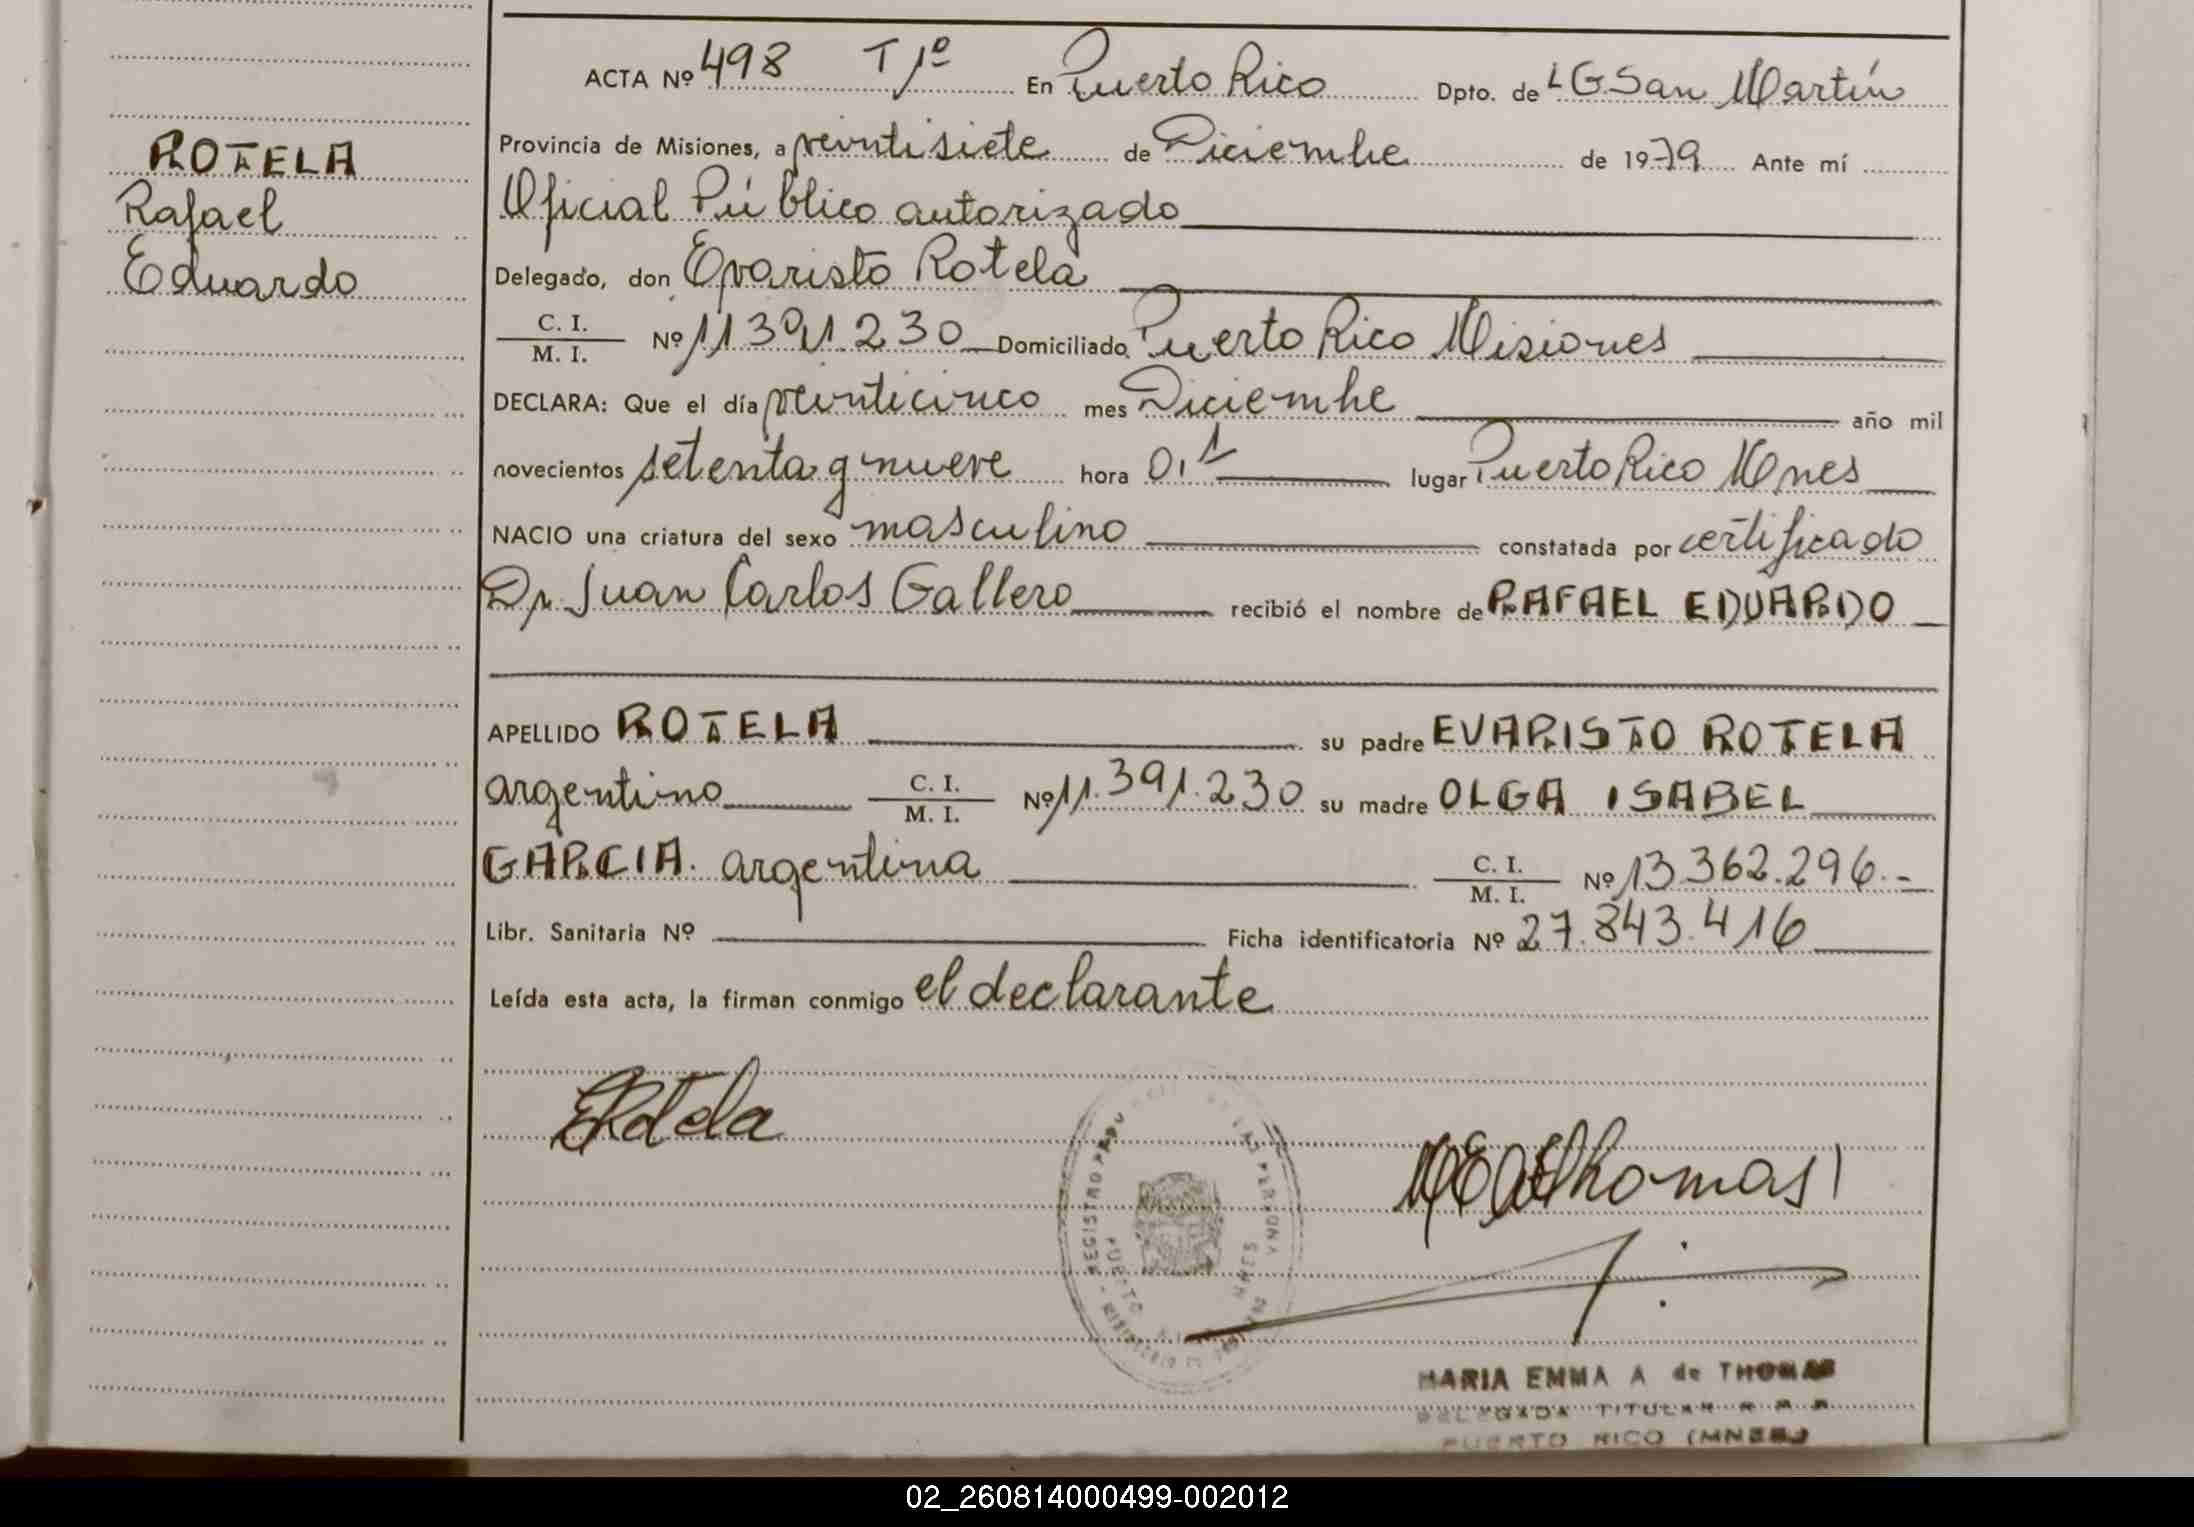 ACTA Nº 498 T 1º En Puerto Rico Dpto. de L G San Martín
Provincia de Misiones, a veintisiete de Diciembre de 1979 Ante mí
Oficial Público autorizado
Delegado, don Evaristo Rotela
C. I. / M. I. Nº 11 391.230 Domiciliado Puerto Rico Misiones
DECLARA: Que el día veinticinco mes Diciembre año mil
novecientos setenta y nueve hora 0,1 lugar Puerto Rico Mnes
NACIO una criatura del sexo masculino constatada por certificado
Dr. Juan Carlos Gallero recibió el nombre de RAFAEL EDUARDO
APELLIDO ROTELA su padre EVARISTO ROTELA
argentino C. I. / M. I. Nº 11.391.230 su madre OLGA ISABEL
GARCIA. argentina C. I. / M. I. Nº 13 362.296.-
Libr. Sanitaria Nº Ficha identificatoria Nº 27.843.416
Leída esta acta, la firman conmigo el declarante
ROTELA
Rafael
Eduardo
ERotela
MEAdeThomas
MARIA EMMA A de THOMAS
DELEGADA TITULAR R P P
PUERTO RICO (MNES.)
02_260814000499-002012